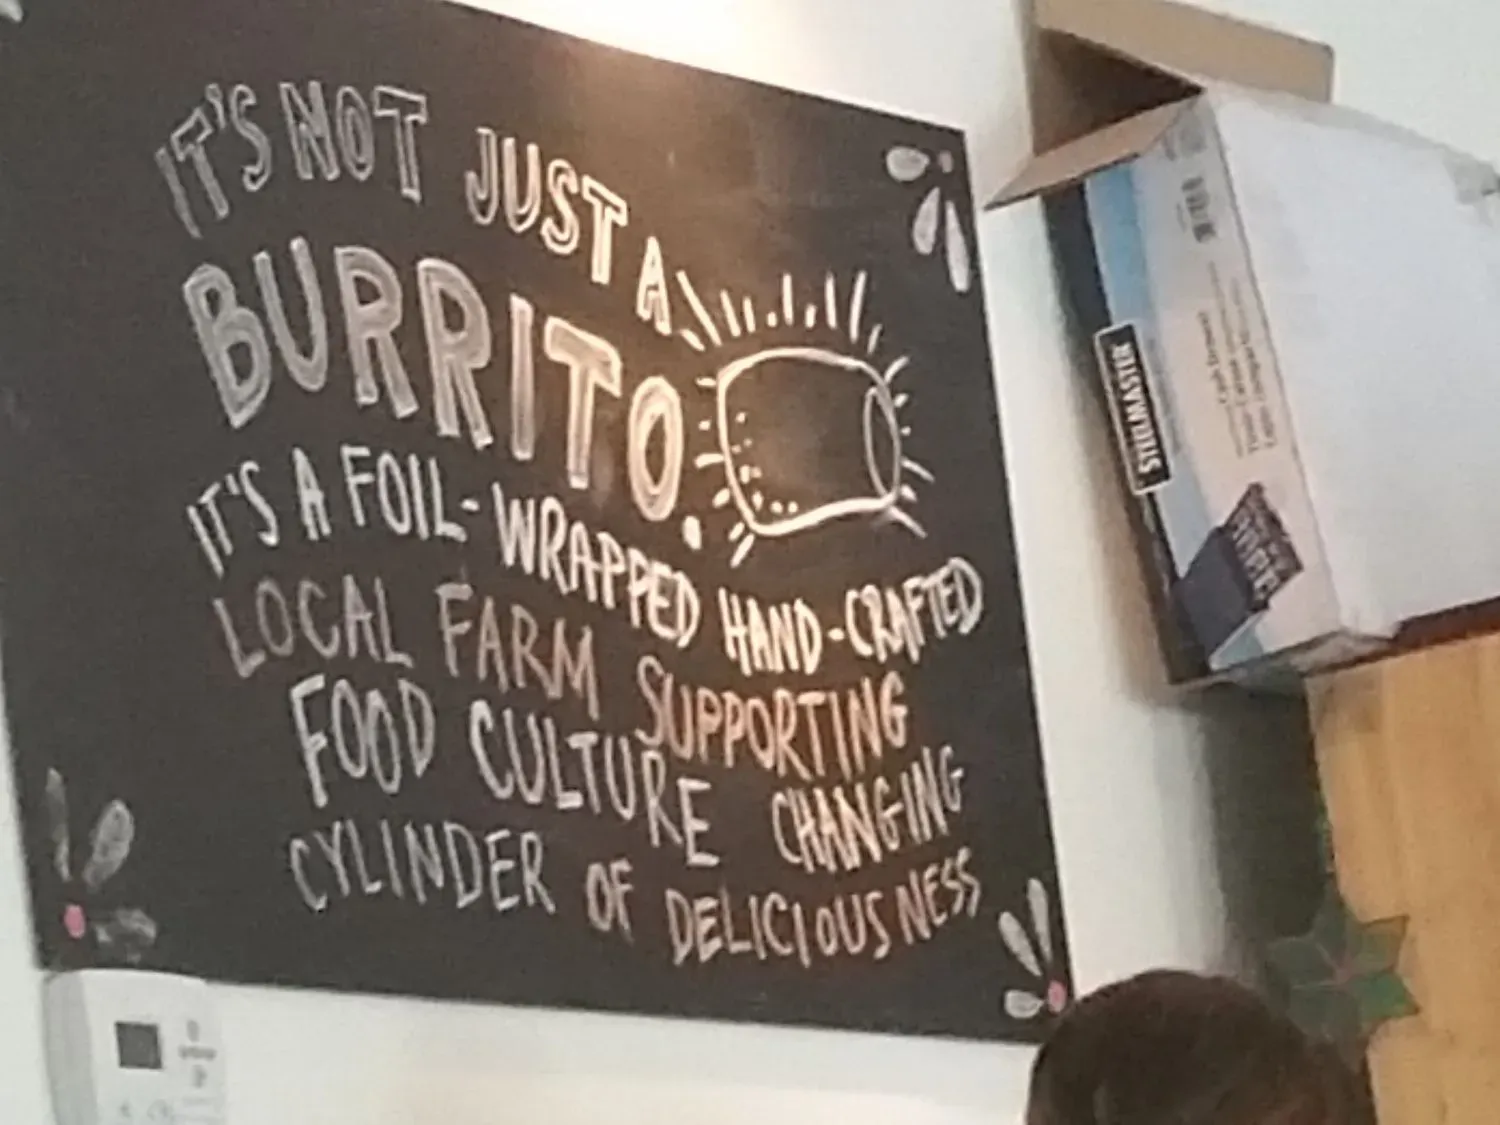 IT'S NOT JUST A
BURRITO.
IT'S A FOIL-WRAPPED HAND-CRAFTED
LOCAL FARM SUPPORTING
FOOD CULTURE CHANGING
CYLINDER OF DELICIOUSNESS
STEELMASTER